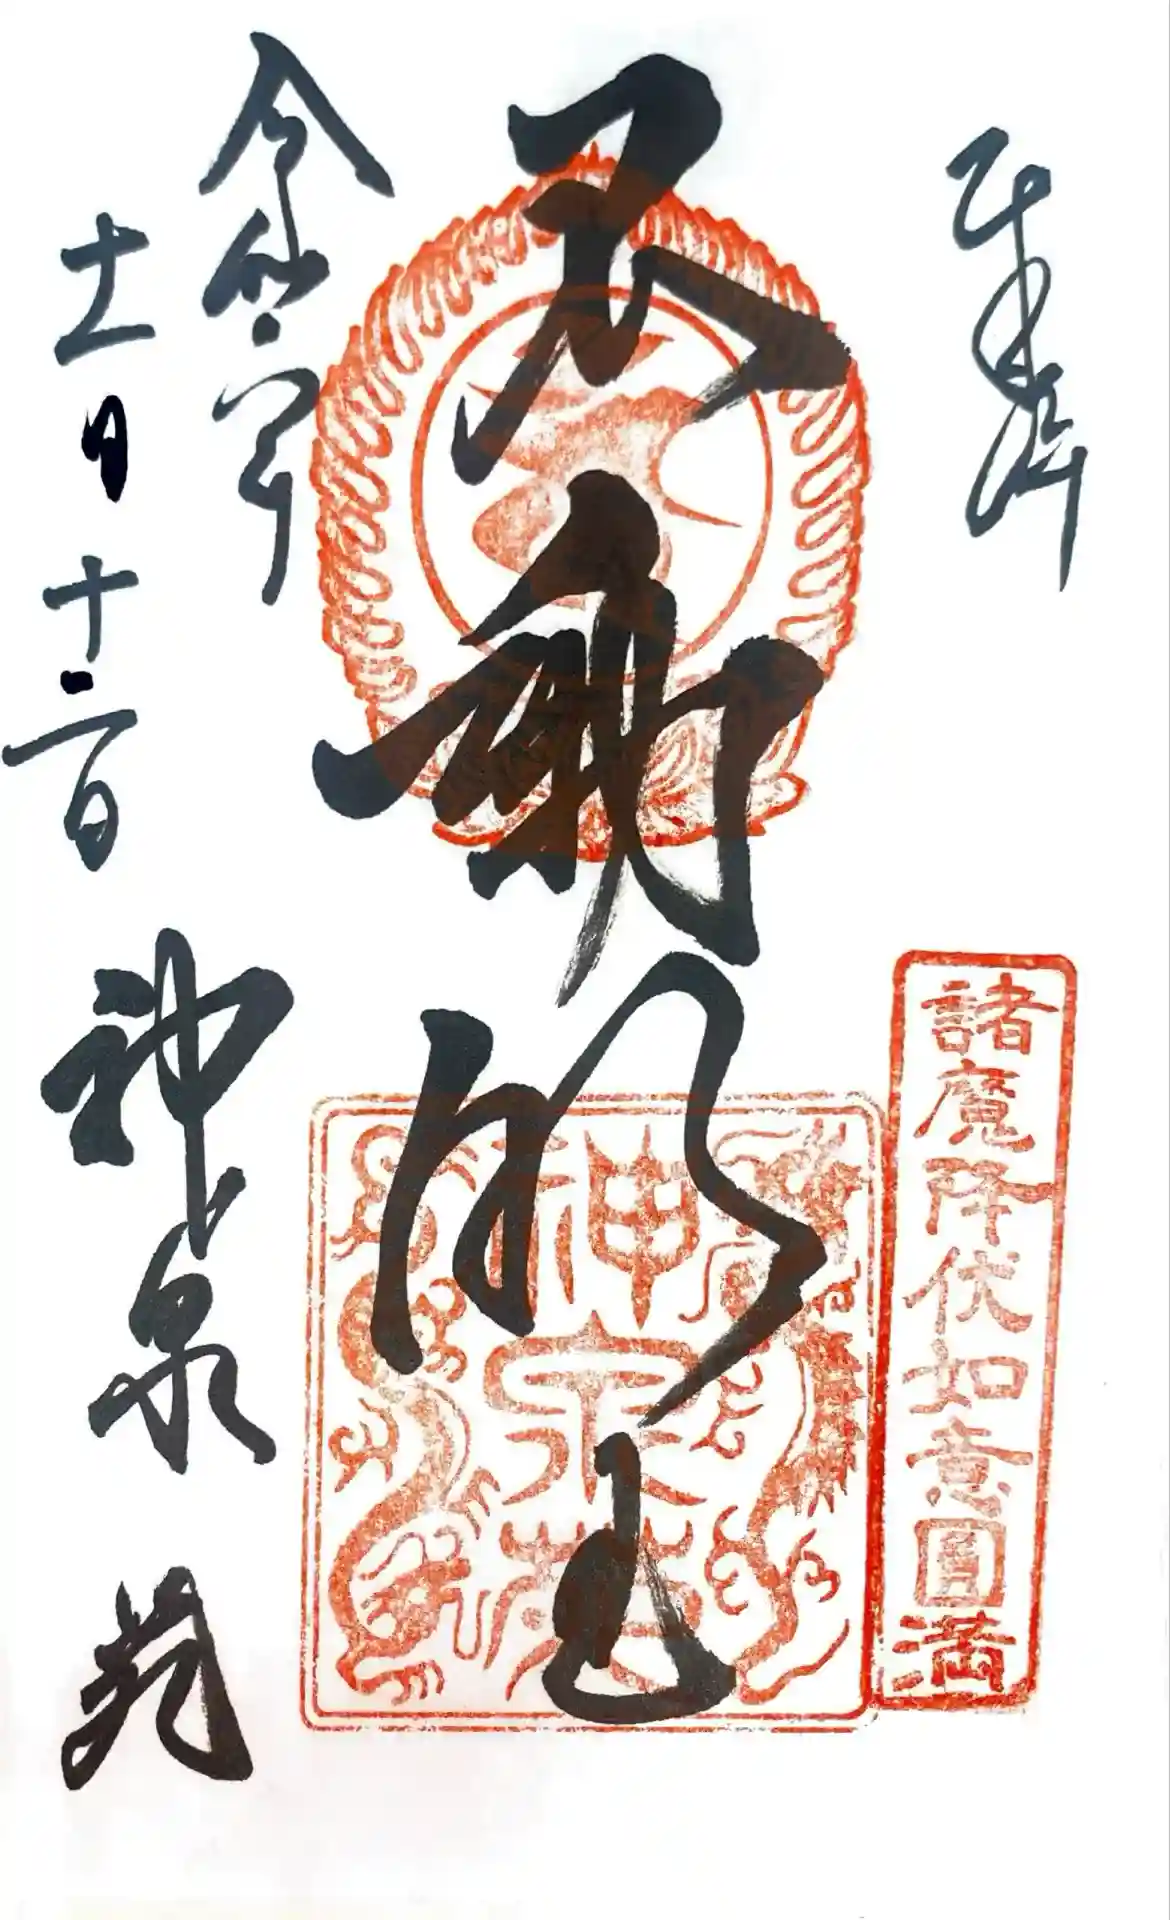 奉拝
諸魔降伏如意圓満
不動明王
神泉苑
令和 年
十一月十二日
神泉苑